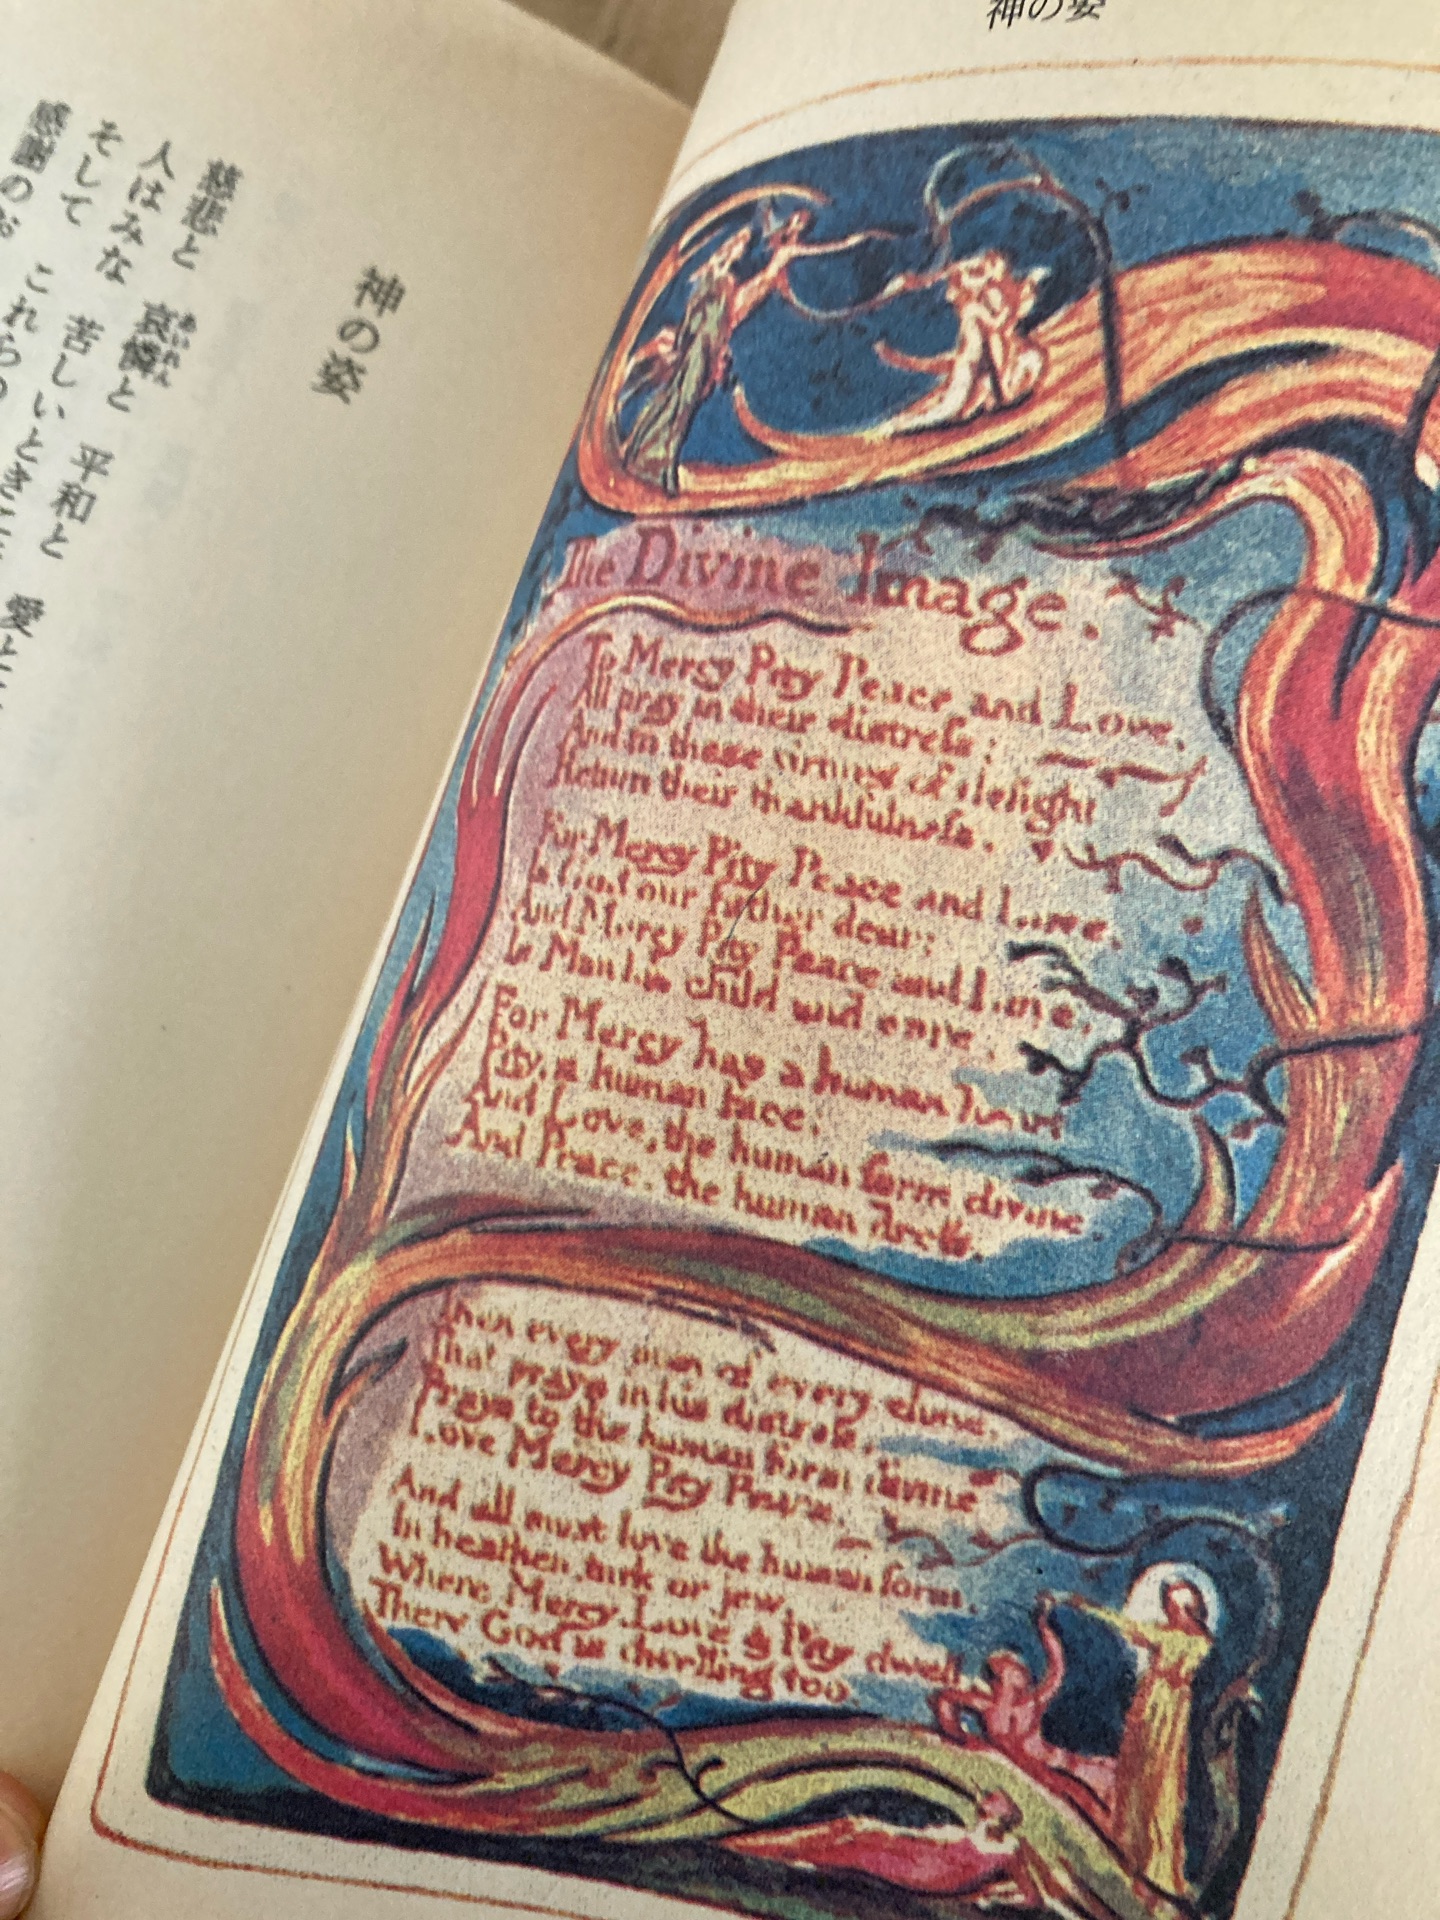 神の姿
神の姿
慈悲と 哀憐と 平和と 愛と
あいれん
人はみな 苦しいときに
そして これらの
感謝の
The Divine Image.
To Mercy Pity Peace and Love,
All pray in their distress:
And to these virtues of delight
Return their thankfulness.
For Mercy Pity Peace and Love,
Is God our father dear:
And Mercy Pity Peace and Love,
Is Man his child and care.
For Mercy has a human heart
Pity, a human face:
And Love, the human form divine.
And Peace, the human dress.
Then every man of every clime,
That prays in his distress,
Prays to the human form divine
Love Mercy Pity Peace.
And all must love the human form,
In heathen, turk or jew.
Where Mercy, Love & Pity dwell,
There God is dwelling too.